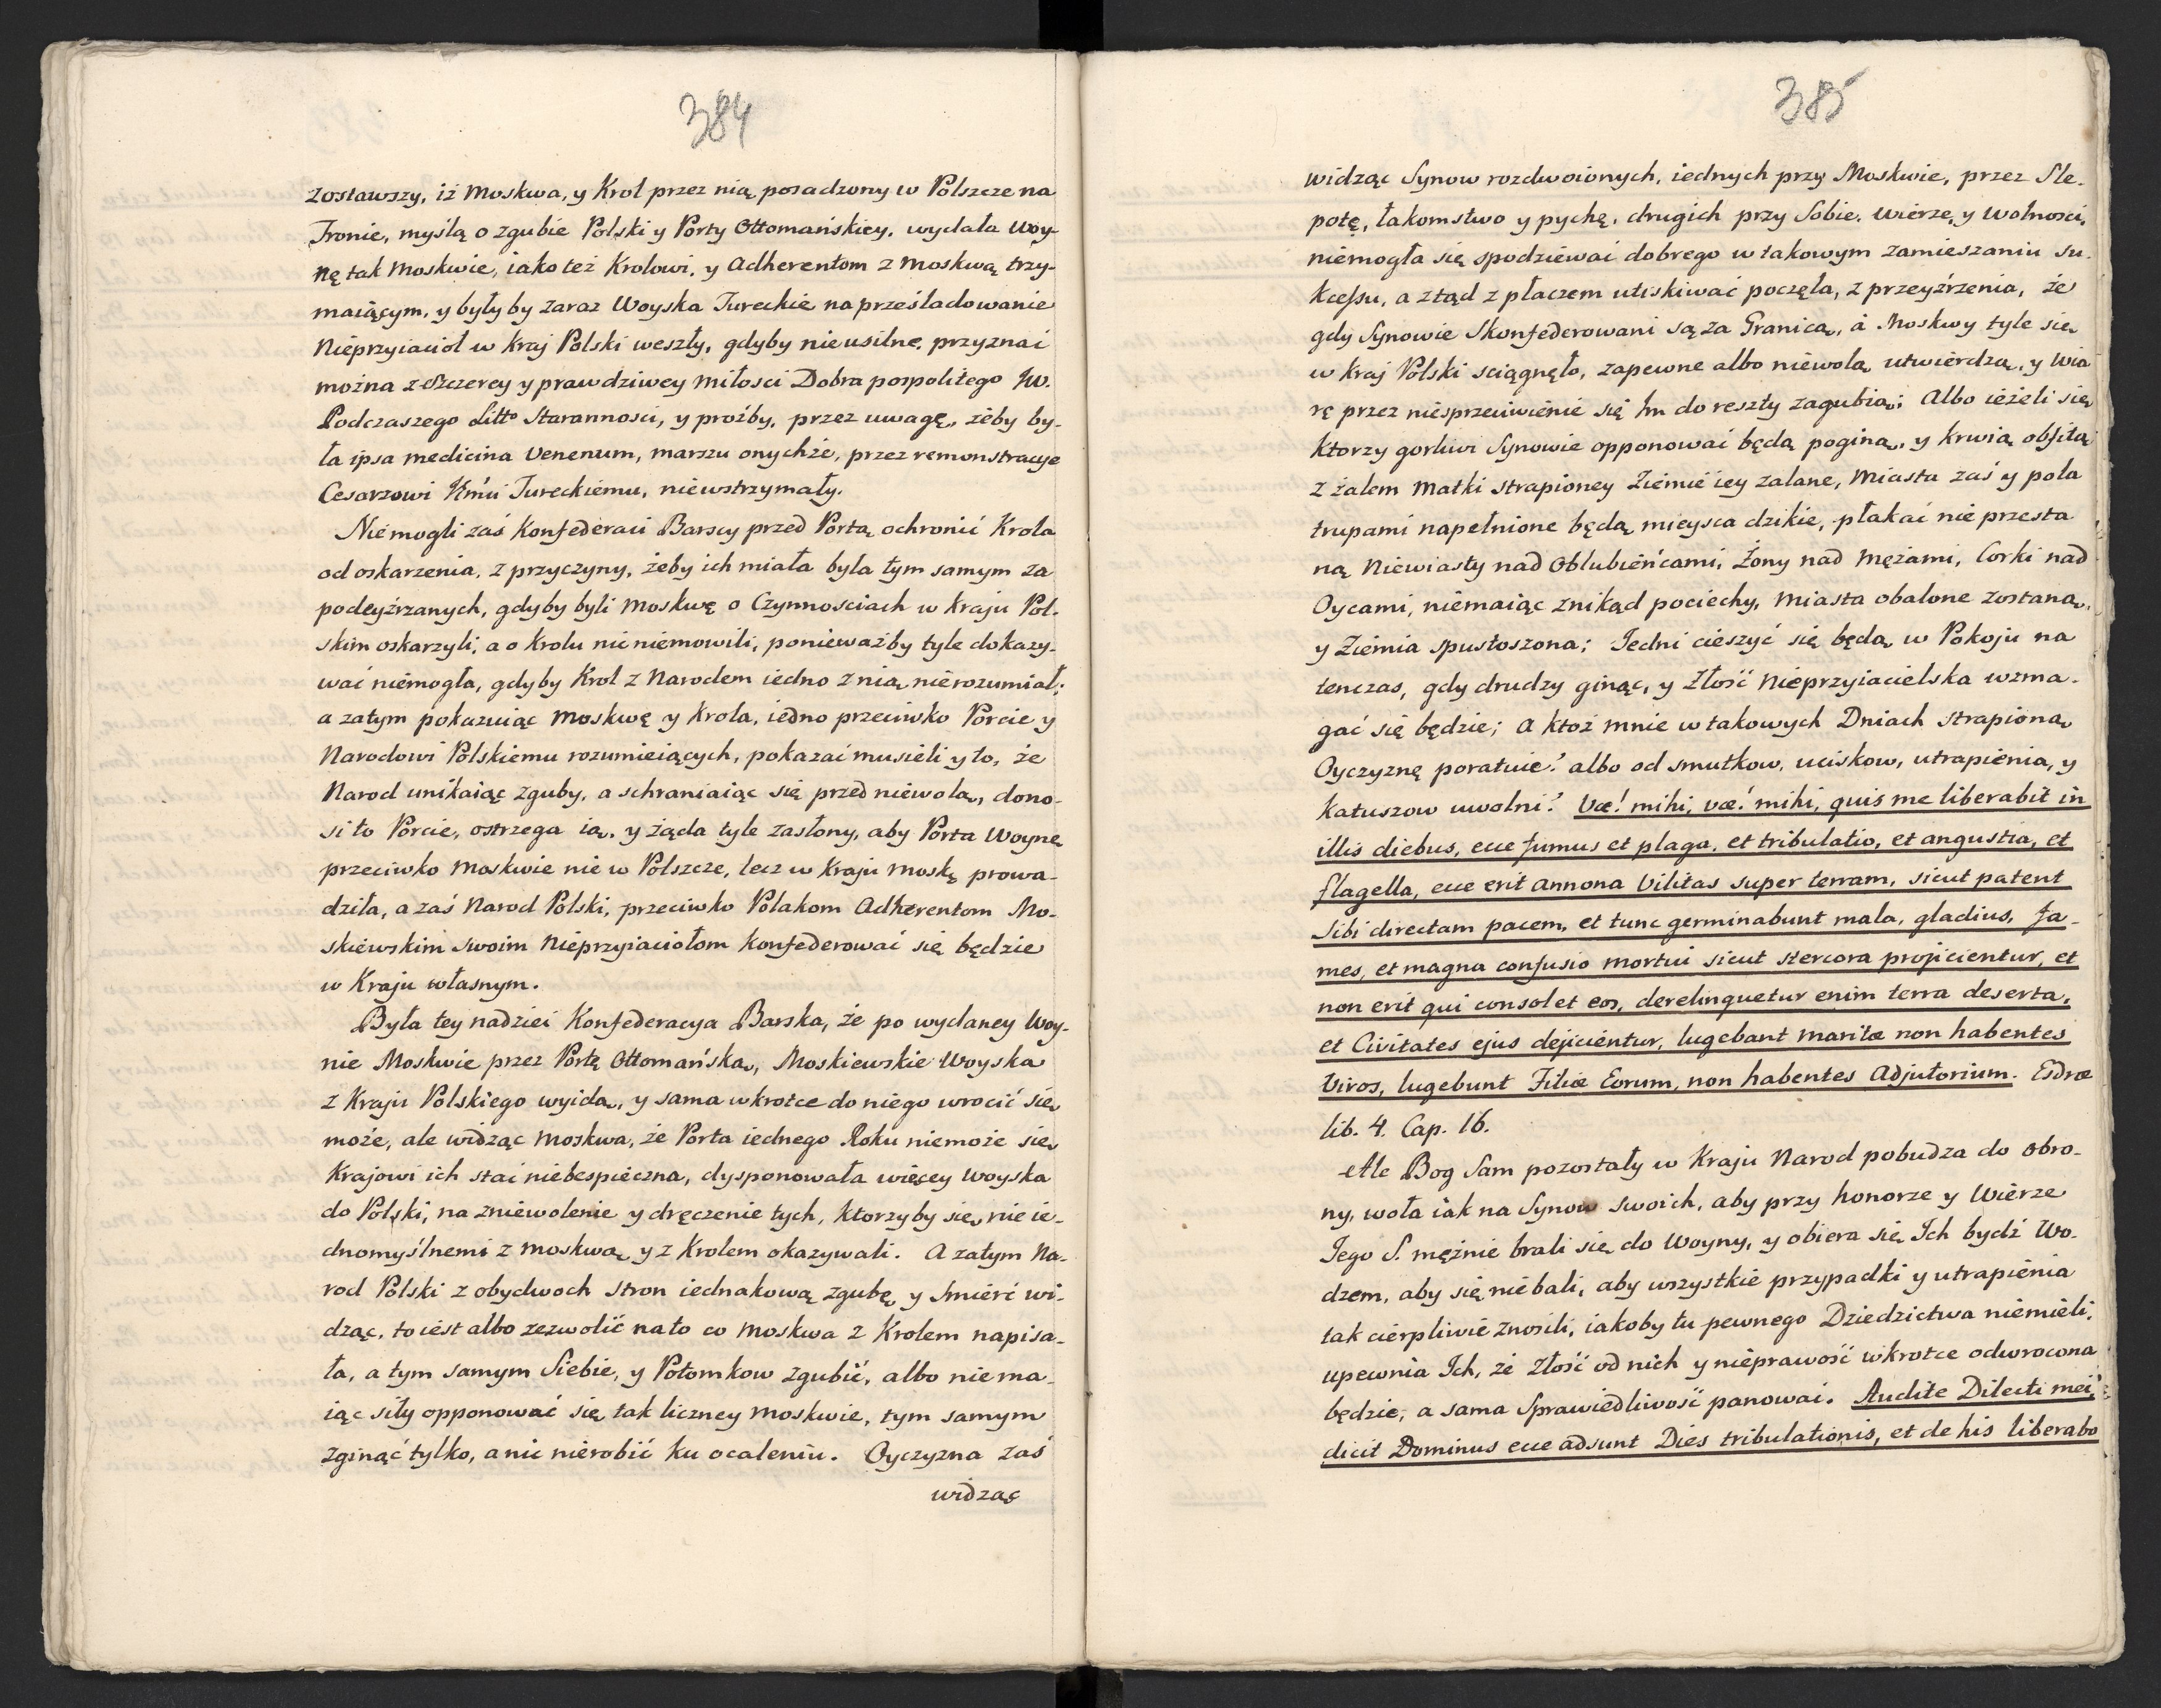 384
zostawszy, iż Moskwa, y Krol przez nią posadzony w Polszcze na
Tronie, myślą o zgubie Polski y Porty Ottomańskiey, wydała Woy-
nę tak Moskwie, iako też Krolowi, y Adherentom z Moskwą trzy-
maiącym, y byłyby zaraz Woyska Tureckie na prześladowanie
Nieprzyiacioł w Kraj Polski weszły, gdyby nie usilne, przyznać
można z Szczerey y prawdziwey miłosci Dobra pospolitego JW.
Podczaszego Litto Starannosci, y proźby, przez uwagę, żeby by-
ła ipsa medicina venenum, marszu onychże, przez remonstracye
Cesarzowi Jmći Tureckiemu, niewstrzymały.
Niemogli zaś Konfederaci Barscy przed Portą ochronić Krola
od oskarzenia, z przyczyny, żeby ich miała była tym samym za
podeyźrzanych, gdyby byli Moskwę o Czynnosciach w Kraju Pol-
skim oskarzyli, a o Krolu nic niemowili, ponieważby tyle dokazy-
wać niemogła, gdyby Krol z Narodem iedno z nią nierozumiał;
a zatym pokazuiąc Moskwę y Krola, iedno przeciwko Porcie y
Narodowi Polskiemu rozumieiących, pokazać musieli y to, że
Narod unikaiąc zguby, a schraniaiąc się przed niewolą, dono-
si to Porcie, ostrzega ią, y żąda tyle zasłony, aby Porta Woynę
przeciwko Moskwie nie w Polszcze, lecz w Kraju Moskę prowa-
dziła, a zaś Narod Polski, przeciwko Polakom Adherentom Mo-
skiewskim swoim Nieprzyiaciołom Konfederować się będzie
w Kraju własnym.
Była tey nadziei Konfederacya Barska, że po wydaney Woy-
nie Moskwie przez Portę Ottomańską, Moskiewskie Woyska
z Kraju Polskiego wyidą, y sama wkrotce do niego wrocić się
może, ale widząc Moskwa, że Porta iednego Roku niemoże się
Krajowi ich stać niebespieczna, dysponowała więcey Woyska
do Polski, na zniewolenie y dręczenie tych, ktorzyby się nie ie-
dnomyślnemi z Moskwą y z Krolem okazywali. A zatym Na-
rod Polski z obydwoch stron iednakową zgubę y Smierć wi-
dząc, to iest albo zezwolić na to co Moskwa z Krolem napisa-
ła, a tym samym Siebie, y Potomkow zgubić, albo niema-
iąc siły opponować się tak liczney Moskwie, tym samym
zginąć tylko, a nic nierobić ku ocaleniu. Oyczyzna zaś
widząc
385
widząc Synow rozdwoionych, iednych przy Moskwie, przez Sle-
potę, łakomstwo y pychę, drugich przy Sobie, Wierze, y Wolnosci,
niemogła się spodziewać dobrego w takowym zamieszaniu Su-
kcessu, a ztąd z płaczem utiskiwać poczęła, z przeyźrzenia, że
gdy Synowie Skonfederowani są za Granicą, a Moskwy tyle się
w Kraj Polski sciągnęło, zapewne albo niewolą utwierdzą, y Wia
rę przez niesprzeciwienie się Im do reszty zagubią; Albo ieżeli się
Ktorzy gorliwi Synowie opponować będą poginą, y krwią obfitą
z żalem Matki strapioney Ziemie iey zalane, Miasta zaś y pola
trupami napełnione będą, mieysca dzikie, płakać nie przesta
ną Niewiasty nad Oblubieńcami, Żony nad Mężami, Corki nad
Oycami, niemaiąc znikąd pociechy, Miasta obalone zostaną,
y Ziemia spustoszona; Jedni cieszyć się będą w Pokoju na
tenczas, gdy drudzy ginąc, y Złość Nieprzyiacielska wzma-
gać się będzie; A ktoż mnie w takowych Dniach strapioną
Oyczyznę poratuie? albo od smutkow, uciskow, utrapienia, y
Katuszow uwolni? Væ! mihi, væ! mihi, quis me liberabit in
illis diebus, ecce fumus et plaga, et tribulatio, et angustia, et
flagella, ecce erit Annona Vilitas super terram, sicut patent
sibi directam pacem, et tunc germinabunt mala, gladius, fa-
mes, et magna confusio mortui sicut stercora projicientur, et
non erit qui consolet eos, derelinquetur enim terra deserta,
et Civitates ejus dejicientur, lugebant maritæ non habentes
Viros, lugebunt Filiæ Eorum, non habentes Adjutorium. Esdræ
lib. 4. Cap. 16.
Ale Bog Sam pozostały w Kraju Narod pobudza do obro-
ny, woła iak na Synow swoich, aby przy honorze y Wierze
Jego S. mężnie brali się do Woyny, y obiera się Ich bydź Wo-
dzem, aby się niebali, aby wszystkie przypadki y utrapienia
tak cierpliwie znosili, iakoby tu pewnego Dziedzictwa niemieli,
upewnia Ich, że Złość od nich y nieprawość wkrotce odwrocona
będzie, a sama Sprawiedliwość panować. Audite Dilecti mei,
dicit Dominus ecce adsunt Dies tribulationis, et de his liberabo